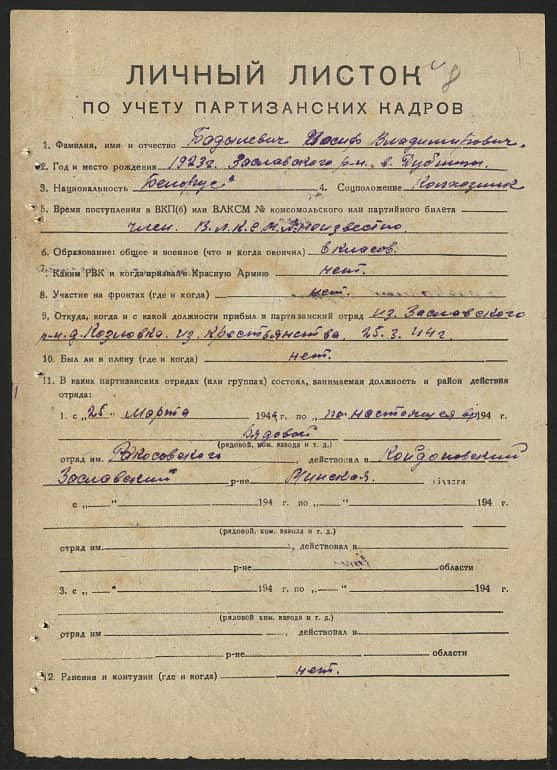 ЛИЧНЫЙ ЛИСТОК 8
ПО УЧЕТУ ПАРТИЗАНСКИХ КАДРОВ
1. Фамилия, имя и отчество Бодылевич Иосиф Владимирович.
2. Год и место рождения 1923г. Заславского р-н. в. Дубница.
3. Национальность Белорус 4. Соцположение Колхозник
5. Время поступления в ВКП(б) или ВЛКСМ № комсомольского или партийного билета
член. В.Л.К.С.М. неизвестно.
6. Образование: общее и военное (что и когда окончил) 6 класов.
7. Каким РВК и когда призван в Красную Армию нет.
8. Участие на фронтах (где и когда) нет.
9. Откуда, когда и с какой должности прибыл в партизанский отряд из. Заславского
р-н. д. Козловка. из. крестьянства. 25.3.44г.
10. Был ли в плену (где и когда) нет.
11. В каких партизанских отрядах (или группах) состоял, занимаемая должность и район действия
отряда:
1. с „25“ Марта 1944 г. по „ по настоящее вр 194 г.
рядовой
(рядовой, ком. взвода и т. д.)
отряд им. Рокосовского, действовал в Койдоновский
Заславский р-не Минская. области
с „ “ 194 г. по „ “ 194 г.
(рядовой, ком. взвода и т. д.)
отряд им. , действовал в
р-не области
3. с „ “ 194 г. по „ “ 194 г.
(рядовой, ком. взвода и т. д.)
отряд им , действовал в
р-не области
12. Ранения и контузии (где и когда) нет.